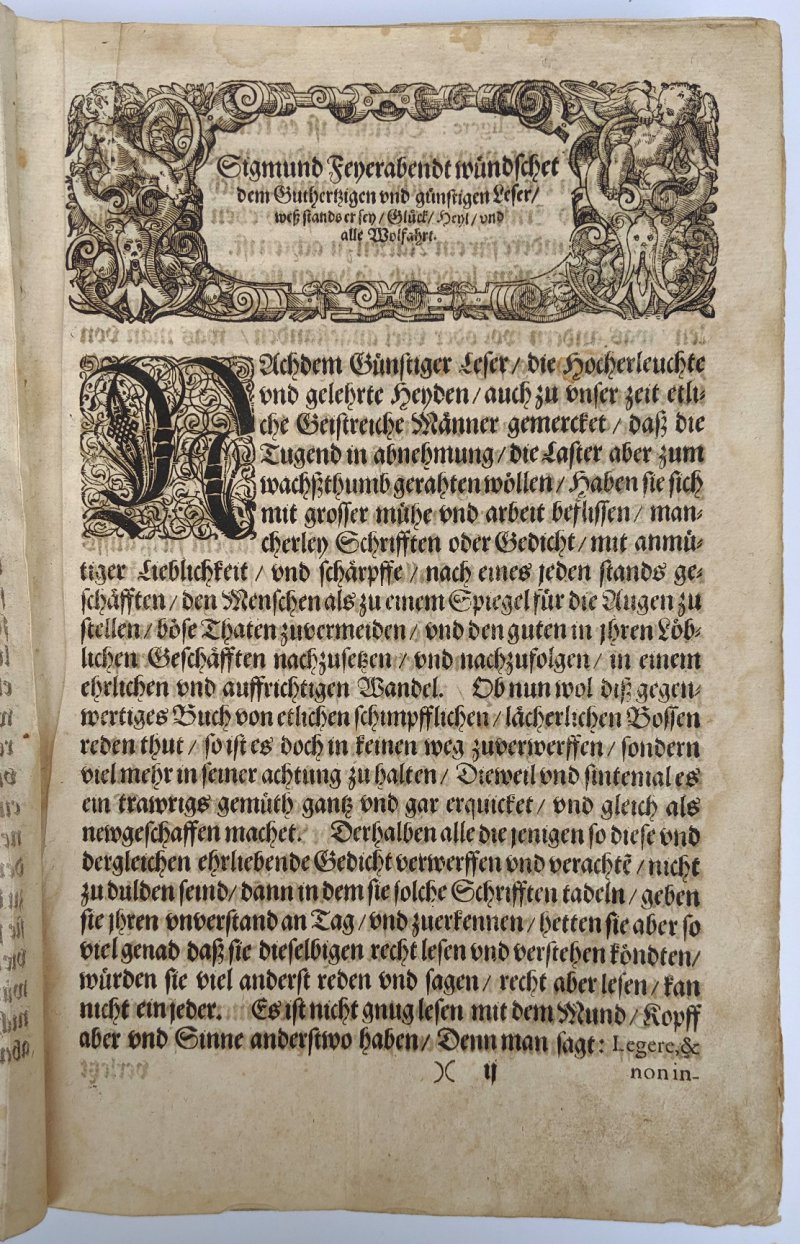 Sigmund Feyerabendt wündschet
dem Guthertzigen vnd günstigen Leser/
weß stands er sey/ Glück/ Heyl/ vnd
alle Wolfahrt.
NAchdem Günstiger Leser/ die Hocherleuchte
vnd gelehrte Heyden/ auch zu vnser zeit etli-
che Geistreiche Männer gemercket/ daß die
Tugend in abnehmung/ die Laster aber zum
wachßthumb gerahten wöllen/ Haben sie sich
mit grosser mühe vnd arbeit beflissen/ man-
cherley Schrifften oder Gedicht/ mit anmü-
tiger Lieblichkeit/ vnd schärpffe/ nach eines jeden stands ge-
schäfften/ den Menschen als zu einem Spiegel für die Augen zu
stellen/ böse Thaten zuvermeiden/ vnd den guten in jhren Löb-
lichen Geschäfften nachzusetzen/ vnd nachzufolgen/ in einem
ehrlichen vnd auffrichtigen Wandel. Ob nun wol diß gegen-
wertiges Buch von etlichen schimpfflichen/ lächerlichen Bossen
reden thut/ so ist es doch in keinen weg zuverwerffen/ sondern
viel mehr in seiner achtung zu halten/ Dieweil vnd sintemal es
ein trawrigs gemüth gantz vnd gar erquicket/ vnd gleich als
newgeschaffen machet. Derhalben alle die jenigen so diese vnd
dergleichen ehrliebende Gedicht verwerffen vnd verachtē/ nicht
zu dulden seind/ dann in dem sie solche Schrifften tadeln/ geben
sie jhren vnverstand an Tag/ vnd zuerkennen/ hetten sie aber so
viel genad daß sie dieselbigen recht lesen vnd verstehen köndten/
würden sie viel anderst reden vnd sagen/ recht aber lesen/ kan
nicht ein jeder. Es ist nicht gnug lesen mit dem Mund/ Kopff
aber vnd Sinne anderstwo haben/ Denn man sagt: Legere, &
)( ij non in-